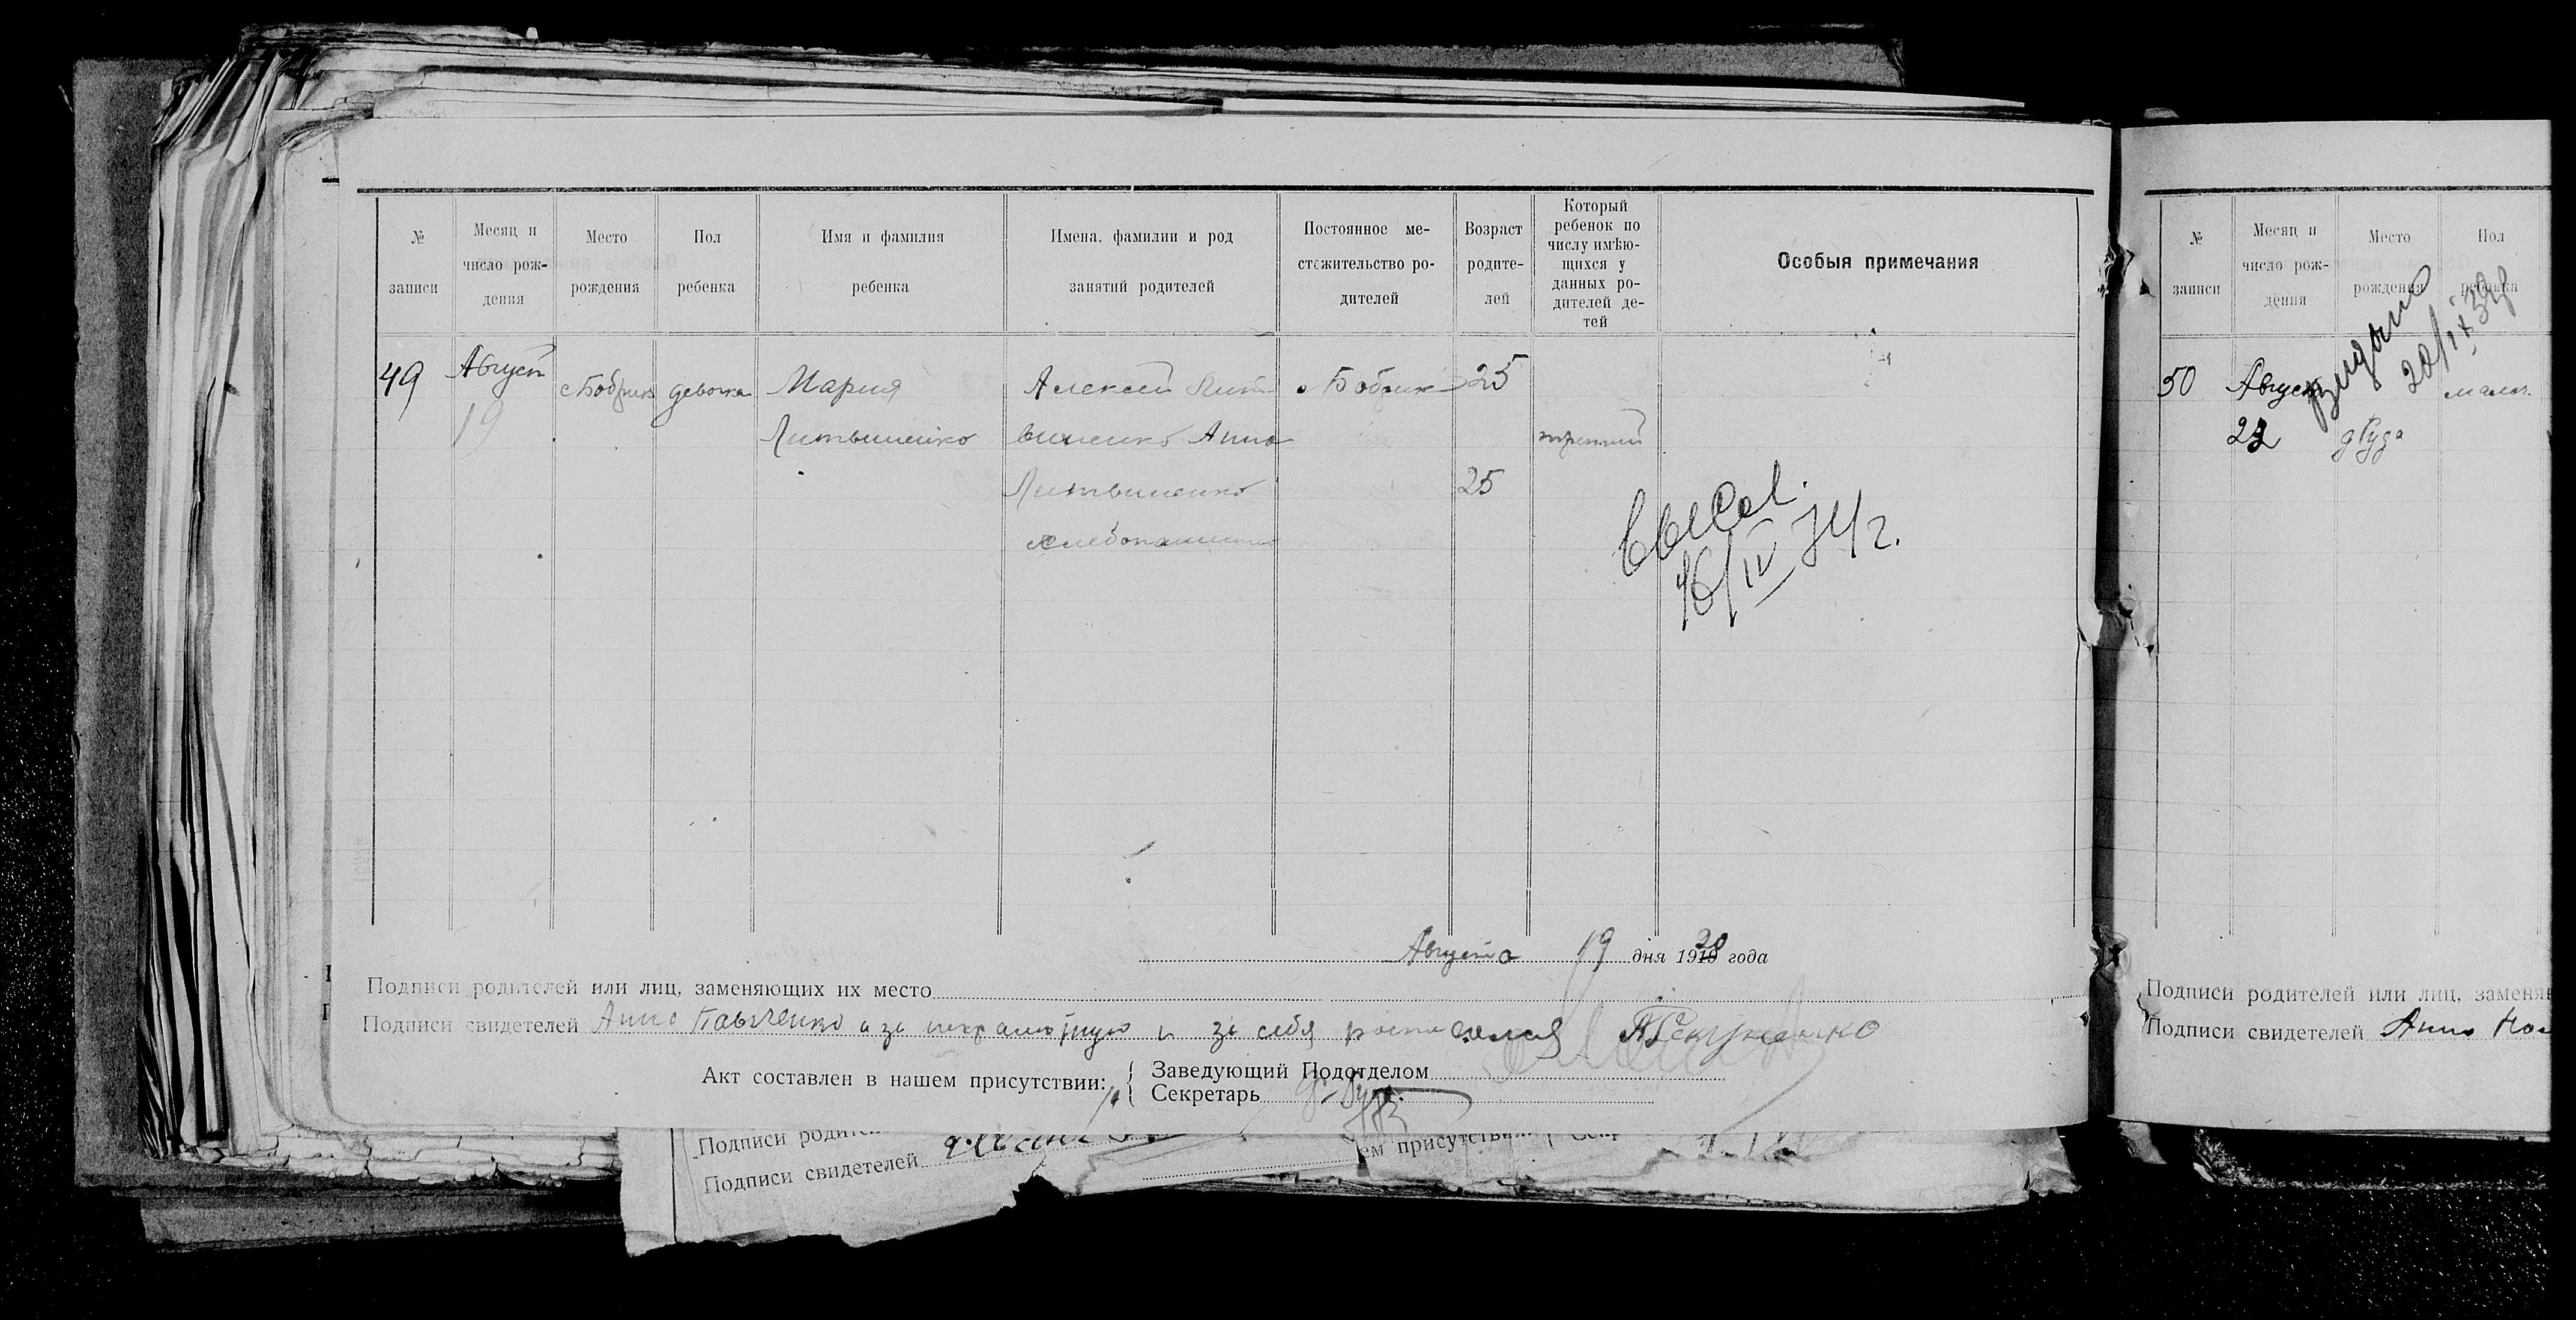 № записи
Месяц и число рождения
Место рождения
Пол ребенка
Имя и фамилия ребенка
Имена. фамилии и род занятий родителей
Постоянное местожительство родителей
Возраст родителей
Который ребенок по числу имѣющихся у данных родителей детей
Особыя примечания
49
Август
19
с Бобрик
девочка
Мария
Литвиненко
Алексей Лит-
виненко Анна
Литвиненко
хлебопашество
с Бобрик
25
25
третий
16/IV 74 г.
Августа 19 дня 1920 года
Подписи родителей или лиц, заменяющих их место
Подписи свидетелей Анна а за неграмотную и за себя росписался
Акт составлен в нашем присутствии:
Заведующий Подотделом
Секретарь
Подписи свидетелей
№ записи
Месяц и число рождения
Место рождения
Пол ребенка
Выдано
20/IX 39г
50
Август
22
д Руда
мальч.
Подписи родителей или лиц, заменя
Подписи свидетелей Анна